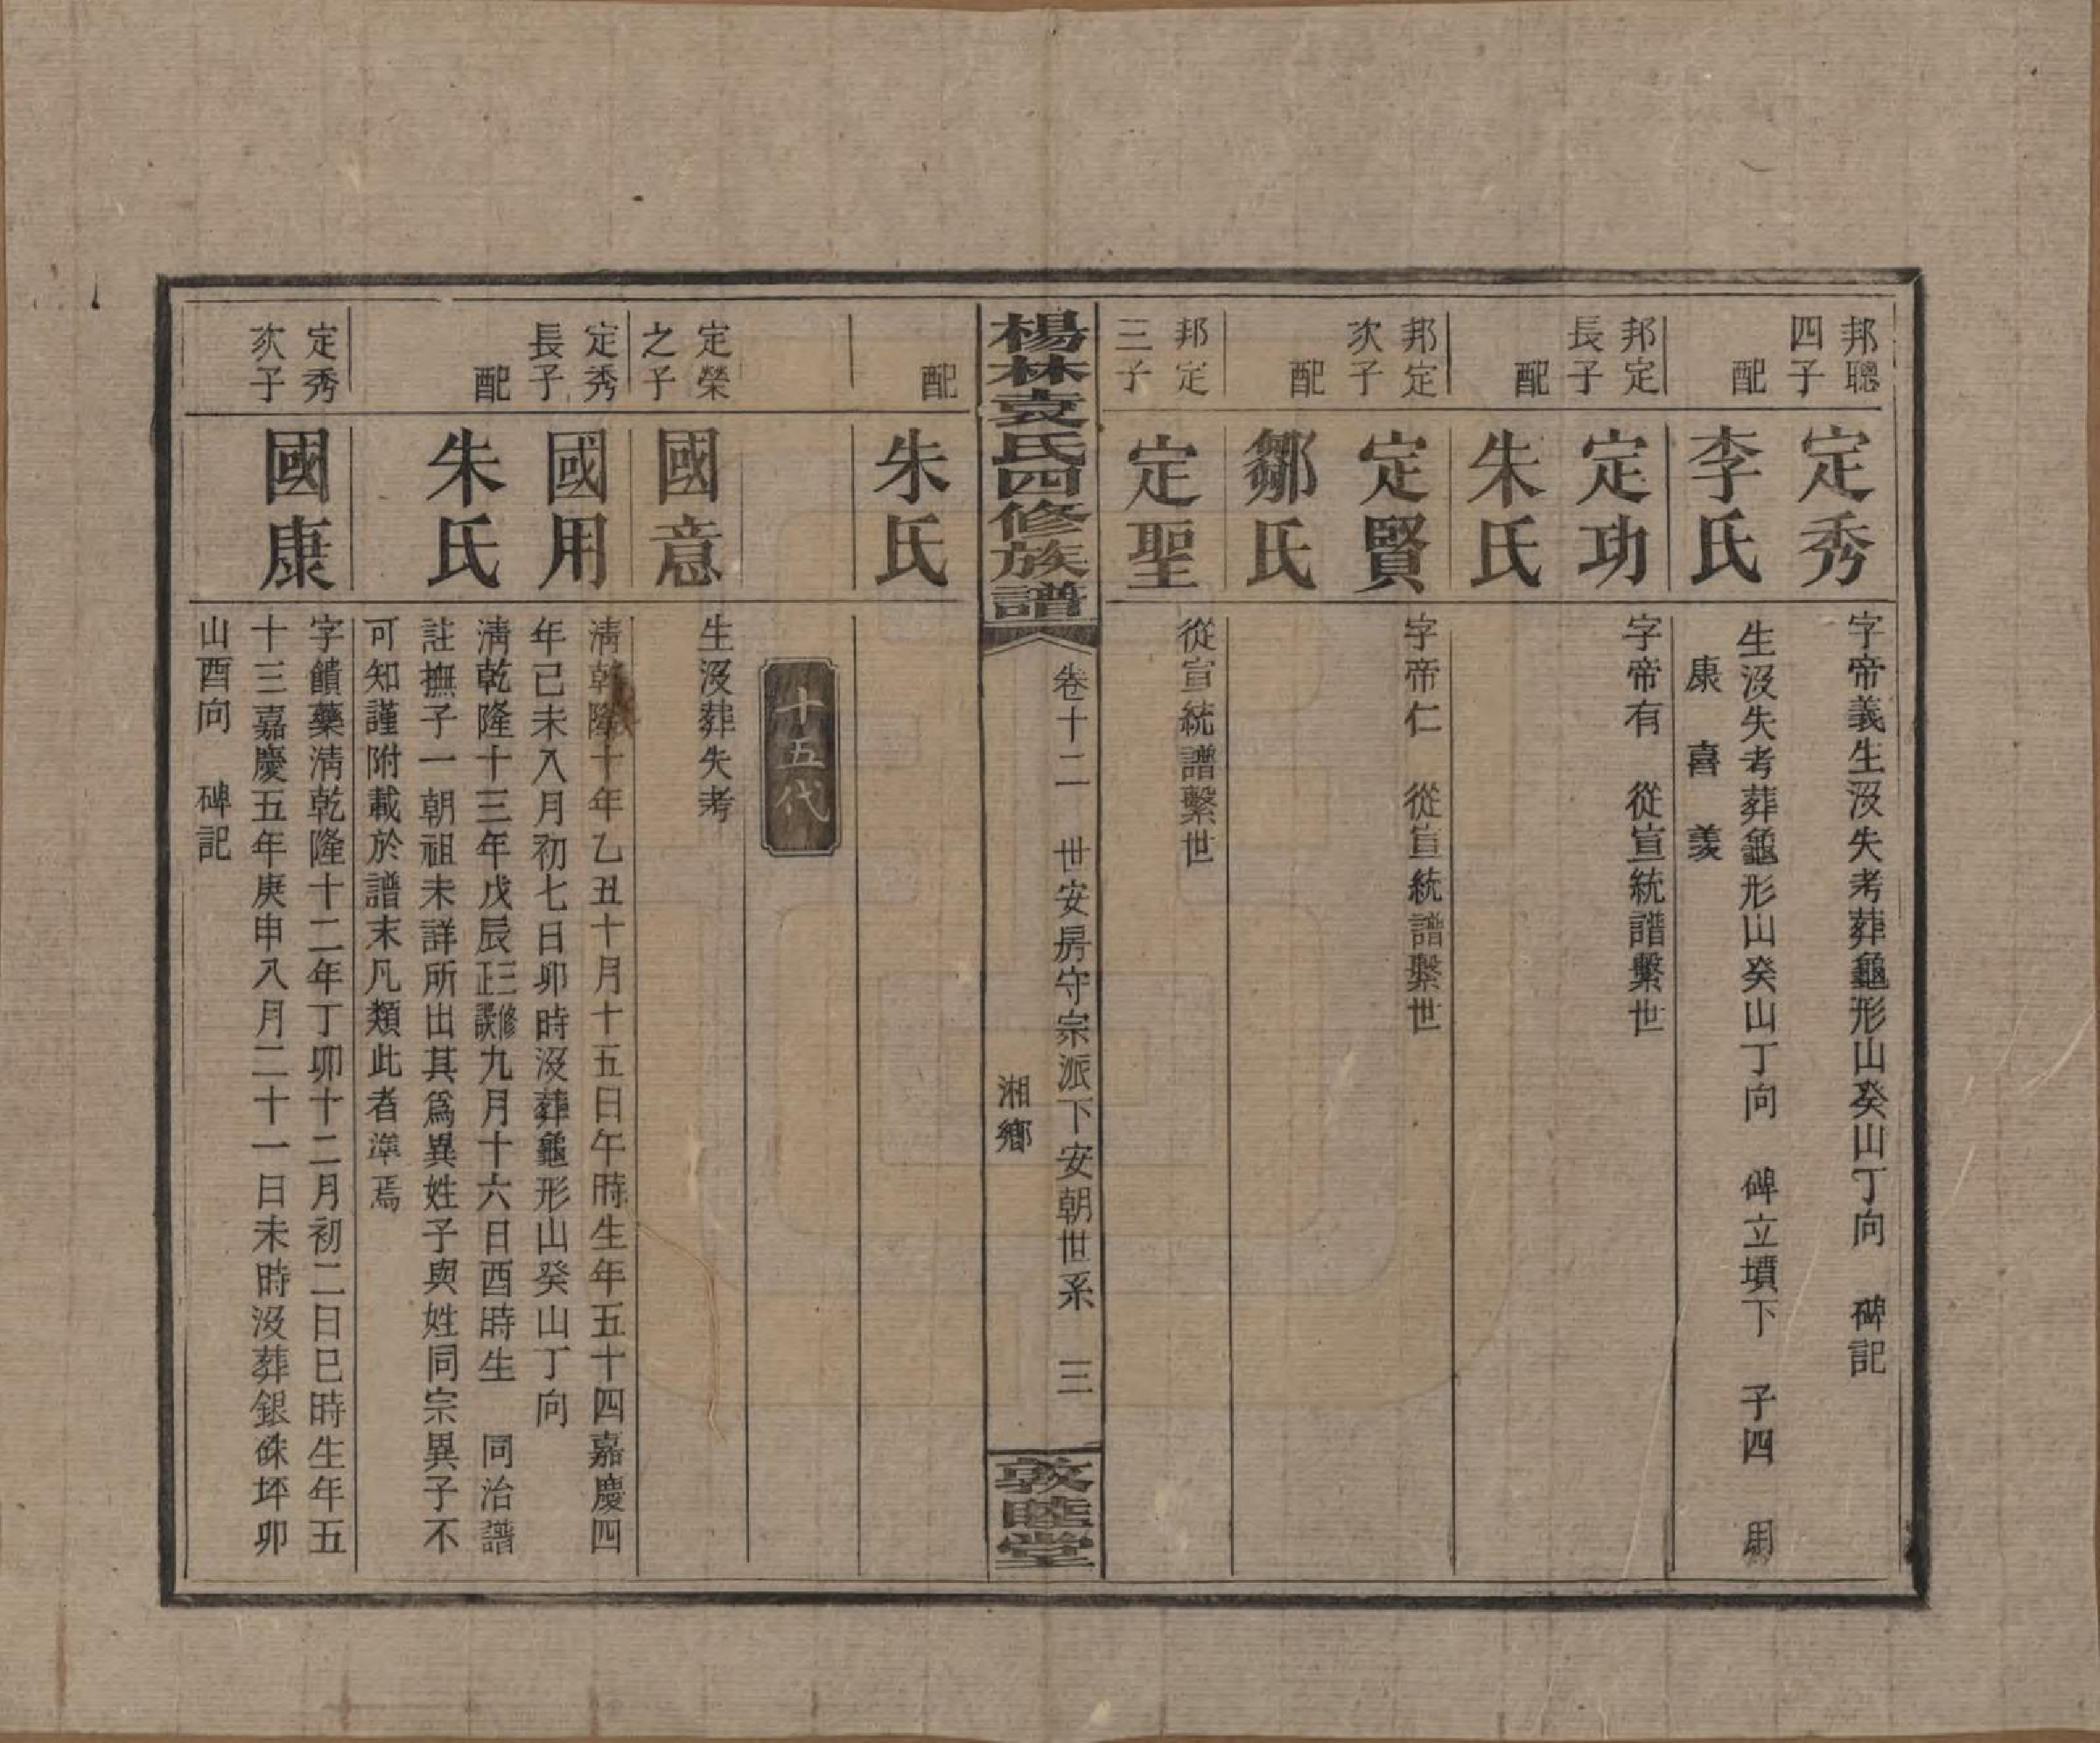 邦聰
四子
定秀
字帝義生沒失考葬龜形山癸山丁向 碑記
配
李氏
生沒失考葬龜形山癸山丁向 碑立墳下 子四 用
康 喜 義
邦定
長子
定功
字帝有 從宣統譜繫世
配
朱氏
邦定
次子
定賢
字帝仁 從宣統譜繫世
配
鄒氏
邦定
三子
定聖
從宣統譜繫世
楊林袁氏四修族譜
卷十二 世安房守宗派下安朝世系 三
湘鄉
敦睦堂
配
朱氏
十五代
定榮
之子
國意
生沒葬失考
定秀
長子
國用
清乾隆十年乙丑十月十五日午時生年五十四嘉慶四
年己未八月初七日卯時沒葬龜形山癸山丁向
配
朱氏
清乾隆十三年戊辰三修正誤九月十六日酉時生 同治譜
註撫子一朝祖未詳所出其為異姓子與姓同宗異子不
可知謹附載於譜末凡類此者準焉
定秀
次子
國康
字饋藥清乾隆十二年丁卯十二月初二日巳時生年五
十三嘉慶五年庚申八月二十一日未時沒葬銀硃坪卯
山酉向 碑記